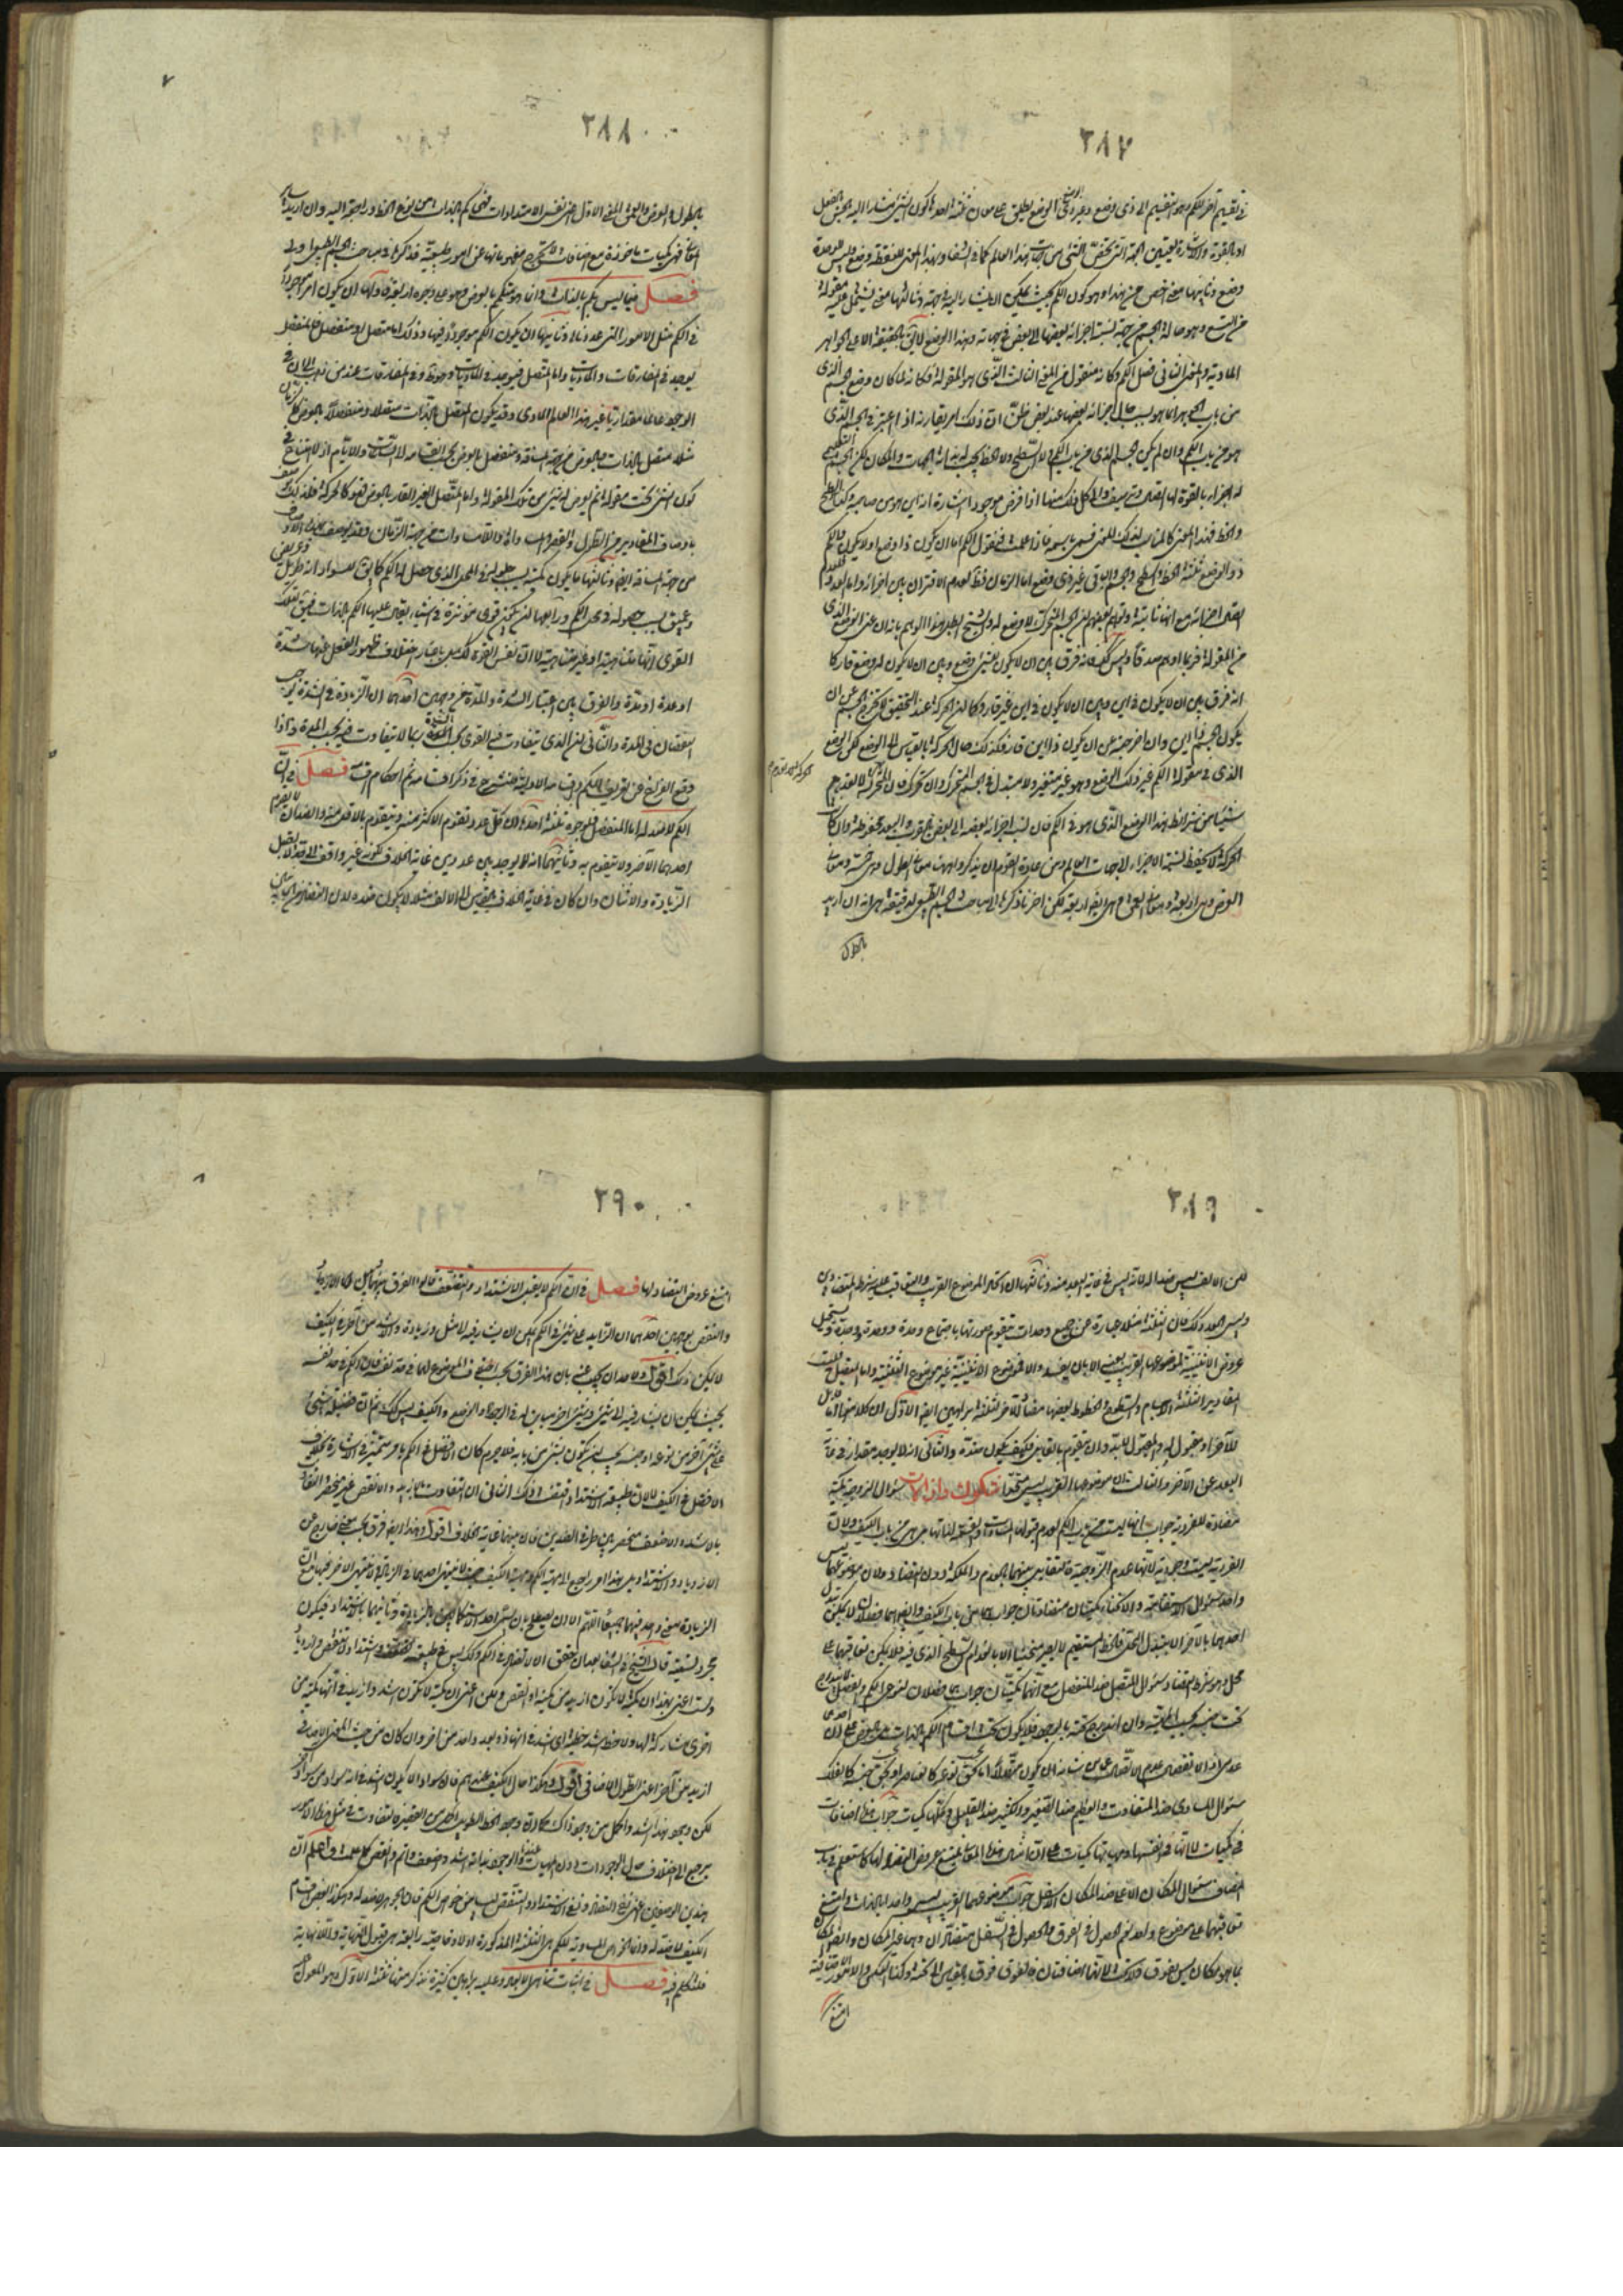 ٣٨٧
في تقسيم آخر للكم وهو التقسيم الى ذي وضع وغير ذي وضع الوضع يطلق على معان ثلثة احدها كون الشيء مشارا اليه بالحس بالفعل
او بالقوة والاشارة تعيين الجهة التي تخص الشيء من جهات هذا العالم كما في الشفا وبهذا المعنى للنقطة وضع وليس للوحدة
وضع وثانيها معنى اخص من هذا وهو كون الكم بحيث يمكن ان يشار اليه جهة وثالثها معنى يشتمل عليه مقولة
من التسع وهو حالة الجسم من جهة نسبة اجزائه بعضها الى بعض في جهاته وهذا الوضع لا يقع بالحقيقة الا على الجواهر
المادية والمعنى الثاني فصل الكم وكانه منقول من المعنى الثالث الذي هو المقولة فكانه لما كان وضع الجسم الذي
من باب الجوهر انما هو بسبب حال اجزائه بعضها عند بعض ظن ان ذلك امر يقارنه اذا اعتبر في الجسم الذي
هو من باب الكم وان لم يكن الجسم الذي من باب الكم ولا السطح ولا الخط بحسب له بذاته الجهات والمكان لكن الجسم التعليمي
له اجزاء بالقوة لها اتصال وترتيب والى كل منها اذا فرض موجودا اشارة انه اين هو من صاحبه وكذا السطح
والخط فهذا المعنى كالمناسب لذلك المعنى فسمي باسمه فاذا علمت فنقول الكم اما ان يكون ذا وضع او لا يكون فالكم
ذو الوضع ثلثة الخط والسطح والجسم والباقي غير ذي وضع اما الزمان فظ لعدم الاقتران بين اجزائه واما العدد فلعدم
اتصال اجزائه مع انها ثابتة وتوهم بعضهم ان الجسم المتحرك لا وضع له والشيخ ابطل هذا الوهم بانه ان عنى الوضع الذي
من المقولة فربما اوهم صدقا وليس كذلك فانه فرق بين ان لا يكون للشيء وضع وبين ان لا يكون له وضع قار كما
انه فرق بين ان لا يكون في اين وبين ان لا يكون في اين غير قار وكما ان الحركة عند التحقيق لا تخرج الجسم عن ان
يكون الجسم ذا اين وان اخرجته عن ان يكون ذا اين قار فكذلك حال الحركة بالقياس الى الوضع لكن الوضع
الذي في مقولة الكم غير ذلك الوضع وهو غير متغير ولا متبدل في الجسم المتحرك وان تحرك فان الحركة لا تعدم
شيئا من شرائط هذا الوضع الذي هو في الكم فان نسب اجزائه بعضه الى بعض في القرب والبعد محفوظة وان كانت
الحركة لا يحفظ نسبة الاجزاء لا جهات العالم ومن عادة القوم ان يذكروا ههنا معاني الطول وهي خمسة ومعاني
العرض وهي اربعة ومعاني العمق وهي ايضا اربعة لكن اخرنا ذكرها الى مباحث الجسم الطبيعي لدقيقة هي انه ان اريد
بالطول
٣٨٨
بالطول والعرض والعمق المعنى الاول اعني نفس الامتدادات فهي كم بالذات من نوع الخط وراجعة اليه وان اريد به سائر
المعاني فهي كميات ماخوذة مع اضافات لا يخرج مفهوماتها عن امور طبيعية فذكرها في مباحث الجسم الطبيعي اولى
فصل فيما ليس بكم بالذات وانما هو متكم بالعرض وهو على وجوه اربعة فاولها ان يكون امرا موجودا
في الكم مثل الامور التي عددناها وثانيها ان يكون الكم موجودا فيها وذلك اما متصل او منفصل فالمنفصل
يوجد في المفارقات والماديات واما المتصل فيوجد في الماديات وجوده وفي المفارقات عند من ذهب الى ان في
الوجود عالما مقداريا غير هذا العالم المادي وقد يكون المتصل بالذات متصلا ومنفصلا بالعرض كالزمان
مثلا متصل بالذات وبالعرض من جهة المسافة ومنفصل بالعرض بحسب انقسامه الى الساعات والايام اذ لا امتناع في
كون الشيء تحت مقولة ثم يعرض له شيء من تلك المقولة واما المتصل الغير القار بالعرض فهو كالحركة فلذلك يوصف
باوصاف المقادير من الطول والقصر والمساواة واللامساواة من جهة الزمان وقد يوصف بهذه الاوصاف
من جهة المسافة ايضا وثالثها ما يكون كميته بسبب حلوله في المحل الذي حصل فيه الكم كما يقال للسواد انه طويل وعريض
وعميق بسبب حصوله في محل الكم ورابعها ان يكون قوى مؤثرة في اشياء يقال عليها الكم بالذات فيقال لتلك
القوى انها متناهية او غير متناهية لا ان نفس القوة كذلك بل باعتبار اختلاف ظهور الفعل عنها شدة
او عدة او مدة والفرق بين اعتبار الشدة والمدة من وجهين احدهما ان الزيادة في الشدة يوجب
النقصان في المدة والثاني ان الذي يتفاوت فيه القوى بحسب الشدة ربما لا يتفاوت فيه بحسب المدة واذا
وقع الفراغ عن تعريف الكم واقسامه الاولية فلنشرع في ذكر اقسامه ثم احكام اقسامه فصل في ان
الكم لا ضد له اما المنفصل فلوجوه ثلثة احدها ان كل عدد يتقوم الاكثر منه ويتقوم بالاقل منه والضدان لا يتقوم
احدهما الآخر ولا يتقوم به وثانيهما انه لا يوجد بين عددين غاية الخلاف لكونه غير واقف الى حد لا يقبل
الزيادة والاثنان وان كان في غاية الخلاف بالقياس الى الالف مثلا لا يكون ضده لان التضاد من الجانبين
٣٨٩
لكن الالف ليس ضدا له لانه ليس في غاية البعد منه وثالثها ان اتحاد الموضوع القريب والتعاقب عليه شرط المتضادين
وليس العدد كذلك فان الثلثة مثلا عبارة عن جميع وحدات متقوم صورتها باجتماع وحدة ووحدة ووحدة ويستحيل
عروض الاثنينية لموضوعها القريب بعينه الا بان يفسد والا فموضوع الاثنينية غير موضوع الثلثية واما المتصل فليست
المقادير الثلثة الاجسام والسطوح والخطوط بعضها مضادا للآخر لثلثة براهين ايضا الاول ان كلا منها اما قابل
للآخر او مقبول له والمقبول لا بد وان يتقوم بالقابل فكيف يكون ضده والثاني انه لا يوجد مقدار في غاية
البعد عن الآخر والثالث ان موضوعها القريب ليس متحدا شكوك وازالات سؤال الزوجية كمية
مضادة للفردية جواب انها ليست من باب الكم لعدم قبولها المساواة والتفاوت لذاتها بل هي من باب الكيف ولان
الفردية ليست وجودية لانها عدم الزوجية فالتقابل بينهما بالعدم والملكة دون التضاد ولان موضوعهما ليس
واحدا سؤال الاستقامة والانحناء كميتان متضادتان جواب هما من باب الكيف وايضا هما فصلان لا يمكن تبدل
احدهما بالآخر الا بتبدل المحل فالخط المستقيم لا يصير منحنيا الا بانعدام السطح الذي فيه فلا يمكن تعاقبهما على
محل وهو شرط التضاد سؤال المتصل ضد المنفصل مع انهما كميتان جواب هما فصلان لنوعي الكم والفصل لا يندرج
تحت جنسه بحسب الماهية وان اندرج تحته بالوجود فلا يكون تحت اقسام الكم بالذات بل بالعرض على ان احدهما
عدمي اذ الانفصال عدم الاتصال عما من شانه ان يكون متصلا اما بحسب نوعه كالعناصر او بحسب جنسه كالفلك
سؤال المساوي ضد المتفاوت والعظيم ضد الصغير والكثير ضد القليل وكلها كميات جواب هذه اضافات
في كميات لا انها في انفسها وماهياتها كميات على ان امثال هذه المعاني يمتنع عروض التضاد لها كما ستعلم في باب
المضاف سؤال المكان الاعلى ضد المكان الاسفل جواب موضوعهما القريب ليس واحدا بالذات فامتنع
تعاقبهما على موضوع واحد نعم الحصول في الفوق والحصول في السفل متضادان وهما غير المكان وايضا المكان
بما هو مكان ليس بفوق ولا سفل لانهما اضافتان فالفوق فوق بالقياس الى تحته وكذا العكس والامور الاضافية
امتنع
٣٩٠
امتنع عروض التضاد لها فصل في ان الكم لا يقبل الاشتداد والتضعف قالوا الفرق بينهما وبين الازدياد
والنقص بوجهين احدهما ان الزايد على شيء في الكم يمكن ان يشار فيه الى مثل وزيادة والاشد من آخر في الكيف
لا يمكن ذلك اقول ولاحد ان يمنعه بان هذا الفرق بحسب اختلاف الموضوع لهما في حد نفسه فان الكم في حد نفسه
بحيث يمكن ان يشار فيه الى شيء وشيء آخر مباين له في الوجود والوضع والكيف ليس كذلك ثم ان فضيلة شيء
على شيء آخر من نوعه او جنسه يجب ان يكون بشيء من بابه فلا جرم كان الافضل في الكم بامر متميز في الاشارة بخلاف
الافضل في الكيف لا لان طبيعة الاشتداد اقتضت ذلك الثاني ان التفاوت بالازيد والانقص غير منحصر والتفاوت
بالاشد والاضعف منحصر بين طرفي الضدين فان بينهما غاية الخلاف اقول وهذا ايضا فرق بحسب معنى خارج عن
الازدياد والاشتداد بل هذا امر راجع الى ماهية الكم وماهية الكيف حيث لا ينتهي احدهما في الزيادة وينتهي الآخر فيها مع ان
الزيادة معنى واحد فيهما جميعا اللهم الا ان يصطلح بان يسمى احد الاستكمالين بالزيادة وثانيهما بالاشتداد فيكون
مجرد تسمية قال الشيخ في الشفا بعد ان حقق ان لا تضاد في الكم وكذلك ليس في طبيعته تضعف واشتداد ولا تنقص وازدياد
ولست اعني بهذا ان كمية لا تكون ازيد من كمية او انقص ولكن اعني ان كمية لا تكون اشد وازيد في انها كمية من
اخرى مشاركة لها ولا خط اشد خطية اي اشد في انها ذو بعد واحد من آخر وان كان من حيث المعنى الاضافي
ازيد من آخر اعني الطول الاضافي اقول وهكذا حال الكيف عندهم فان سوادا لا يكون اشد في انه سواد من سواد آخر
لكن وجود هذا اشد واكمل من وجود ذاك كما ان وجود الخط الطويل اكمل من القصير فالتفاوت في مثل هذا الامور
يرجع الى اختلاف حال الوجودات دون الماهيات عندنا والوجود بذاته اشد واضعف واتم وانقص كما علمت واعلم ان
هذين الوصفين اعني نفي التضاد ونفي الاشتداد والتنقص ليسا من خواص الكم فان الجوهر لا ضد له وهكذا بعض اقسام
الكيف لا ضد له وانما الخواص المساوية للكم هي الثلثة المذكورة اولا وخاصية رابعة هي قبول النهاية واللانهاية
فلنتكلم فيه فصل في اثبات تناهي الابعاد وعليه براهين كثيرة نذكر منها ثلثة الاول وهو المعول